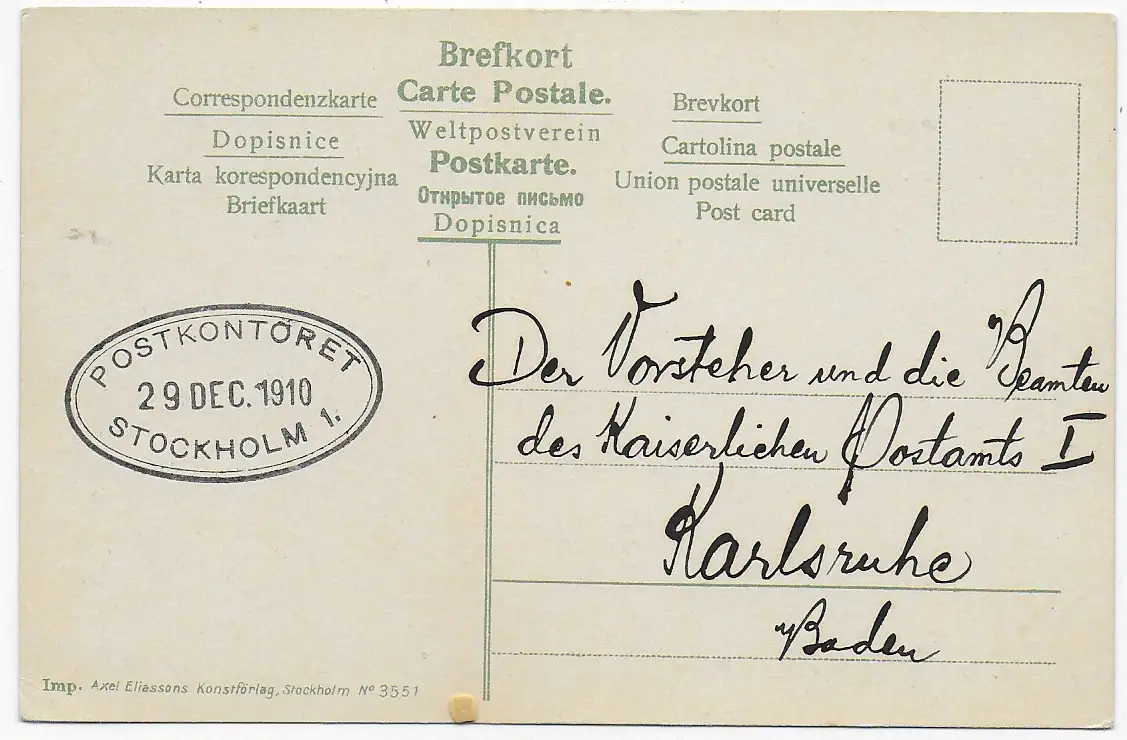 Brefkort
Carte Postale.
Weltpostverein
Postkarte.
Открытое письмо
Dopisnica
Correspondenzkarte
Dopisnice
Karta korespondencyjna
Briefkaart
Brevkort
Cartolina postale
Union postale universelle
Post card
POSTKONTORET
29 DEC. 1910
STOCKHOLM 1.
Der Vorsteher und die Beamten
des Kaiserlichen Postamts I
Karlsruhe
Baden
Imp. Axel Eliassons Konstförlag, Stockholm Nº 3551